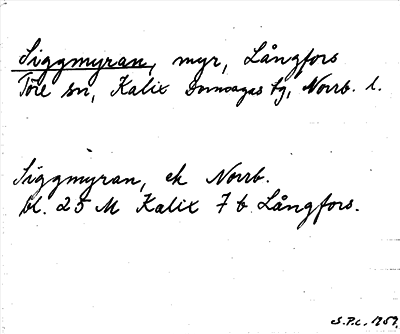 Siggmyran, myr, Långfors
Töre sn, Kalix Domsagas tg, Norrb. l.
Siggmyran, ek Norrb.
bl. 25 M Kalix 7 b Långfors.
S.P.c. 1959.